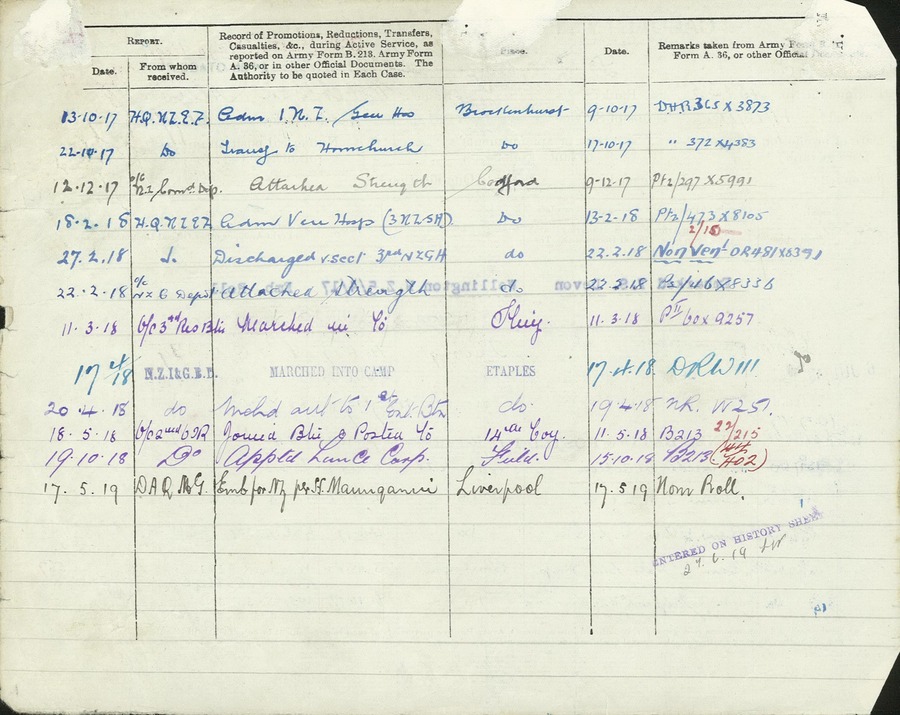 REPORT.
Date.
From whom received.
Record of Promotions, Reductions, Transfers, Casualties, &c., during Active Service, as reported on Army Form B. 213, Army Form A. 36, or in other Official Documents. The Authority to be quoted in Each Case.
Place.
Date.
Remarks taken from Army Form A. 36, or other Official
13-10-17 H.Q.N.Z.E.F. Adm 1. N.Z. Gen Hos Brockenhurst 9-10-17 DHR 365 X 3873
22-10-17 Do Transf to Hornchurch Do 17-10-17 " 372 X 4383
12.12.17 o/c N.Z. Comd Dep. Attached Strength Codford 9-12-17 Pt2/297 X 5991
18.2.18 H.Q.N.Z.E.F. Adm Ven Hosp (3 NZGH) Do 13-2-18 Pt2/473 X 8105
2/15
27.2.18 Do Discharged v.sect 3rd NZGH do 22.2.18 Non Venl OR 481 X 8391
22.2.18 o/c NZ C Depot Attached Strength do 22.2.18 X 8336
11.3.18 O/c 3rd Res Btn Marched in to 11.3.18 PII 60 X 9257
17 4/18 N.Z.I.&G.B.D. MARCHED INTO CAMP ETAPLES 17.4.18 DRW 111
20.4.18 do Mchd out to 1st Ent. Btn do. 19.4.18 NR. W251.
18.5.18 O/c 2nd OIR Joined Btn & Posted to 14th Coy. 11.5.18 B213 22/215
19.10.18 Do Apptd Lance Corp. Field. 15.10.18 B213 (402)
17.5.19 D.A.Q.M.G. Emb for NZ per SS Maunganui Liverpool 17.5.19 Nom Roll.
ENTERED ON HISTORY SHEET
27.6.19